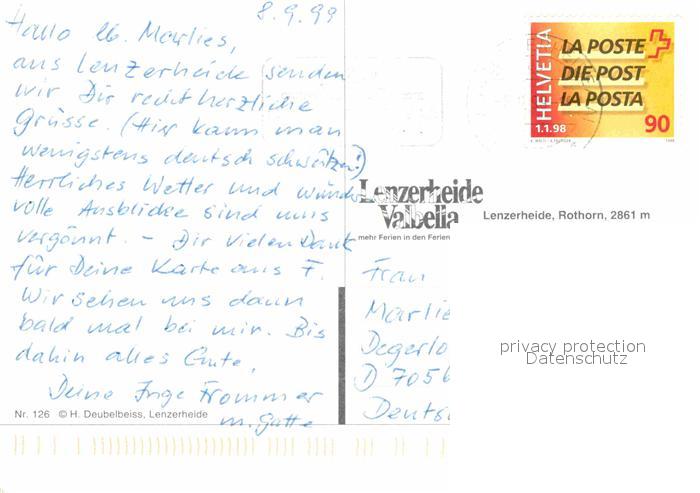 8.9.99
Hallo lb. Marlies,
aus Lenzerheide senden
wir Dir recht herzliche
Grüsse. (Hier kann man
wenigstens deutsch schwätzen!)
Herrliches Wetter und wunder-
volle Ausblicke sind uns
vergönnt. – Dir vielen Dank
für Deine Karte aus F.
Wir sehen uns dann
bald mal bei mir. Bis
dahin alles Gute,
Deine Inge Frommer
m. Gatte
Nr. 126 © H. Deubelbeiss, Lenzerheide
HELVETIA
1.1.98
LA POSTE
DIE POST
LA POSTA
90
1998
Lenzerheide
Valbella
mehr Ferien in den Ferien
Lenzerheide, Rothorn, 2861 m
Frau
Marlie
Degerlo
D 7056
Deuts
privacy protection
Datenschutz